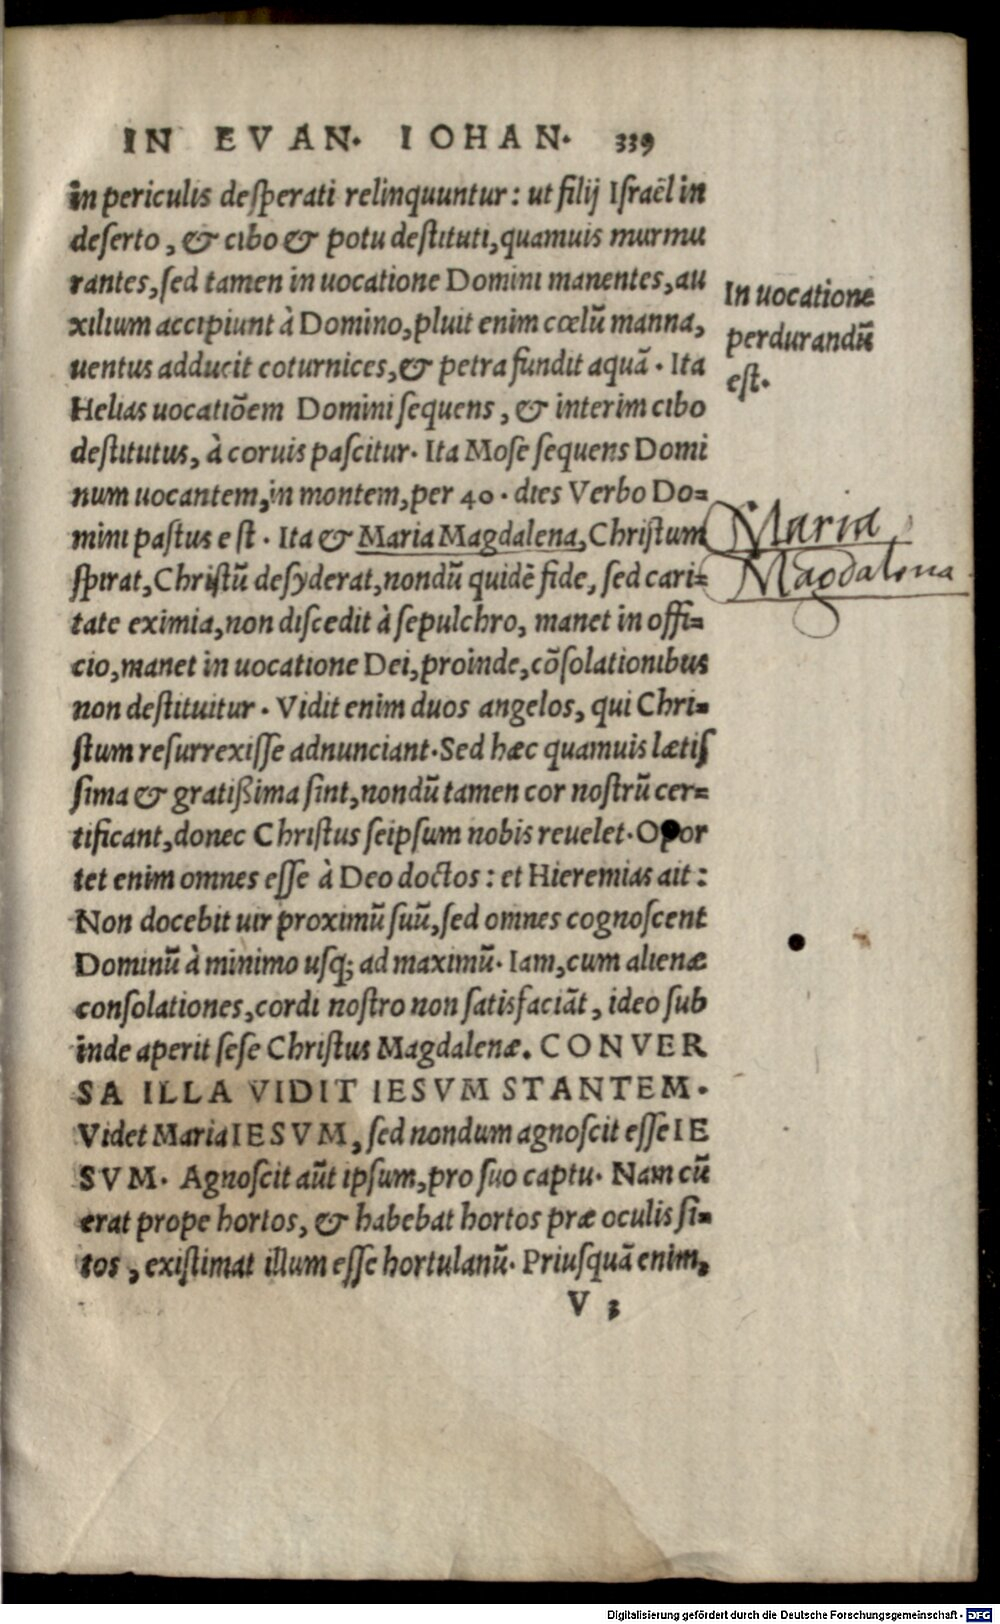 IN EVAN. IOHAN. 339
in periculis desperati relinquuntur: ut filij Israël in
deserto, & cibo & potu destituti, quamuis murmu
rantes, sed tamen in uocatione Domini manentes, au
xilium accipiunt à Domino, pluit enim cœlū manna,
uentus adducit coturnices, & petra fundit aquā. Ita
Helias uocatiõem Domini sequens, & interim cibo
destitutus, à coruis pascitur. Ita Mose sequens Domi
num uocantem, in montem, per 40. dies Verbo Do=
mini pastus est. Ita & Maria Magdalena, Christum
spirat, Christū desyderat, nondū quidē fide, sed cari=
tate eximia, non discedit à sepulchro, manet in offi=
cio, manet in uocatione Dei, proinde, cõsolationibus
non destituitur. Vidit enim duos angelos, qui Chri=
stum resurrexisse adnunciant. Sed hæc quamuis lætis
sima & gratißima sint, nondū tamen cor nostrū cer=
tificant, donec Christus seipsum nobis reuelet. Opor
tet enim omnes esse à Deo doctos: et Hieremias ait:
Non docebit uir proximū suū, sed omnes cognoscent
Dominū à minimo usq; ad maximū. Iam, cum alienæ
consolationes, cordi nostro non satisfaciāt, ideo sub
inde aperit sese Christus Magdalenæ. CONVER
SA ILLA VIDIT IESVM STANTEM.
Videt Maria IESVM, sed nondum agnoscit esse IE
SVM. Agnoscit aūt ipsum, pro suo captu. Nam cū
erat prope hortos, & habebat hortos præ oculis si=
tos, existimat illum esse hortulanū. Priusquā enim,
V 3
In uocatione
perdurandū
est.
Maria
Magdalena
Digitalisierung gefördert durch die Deutsche Forschungsgemeinschaft - DFG